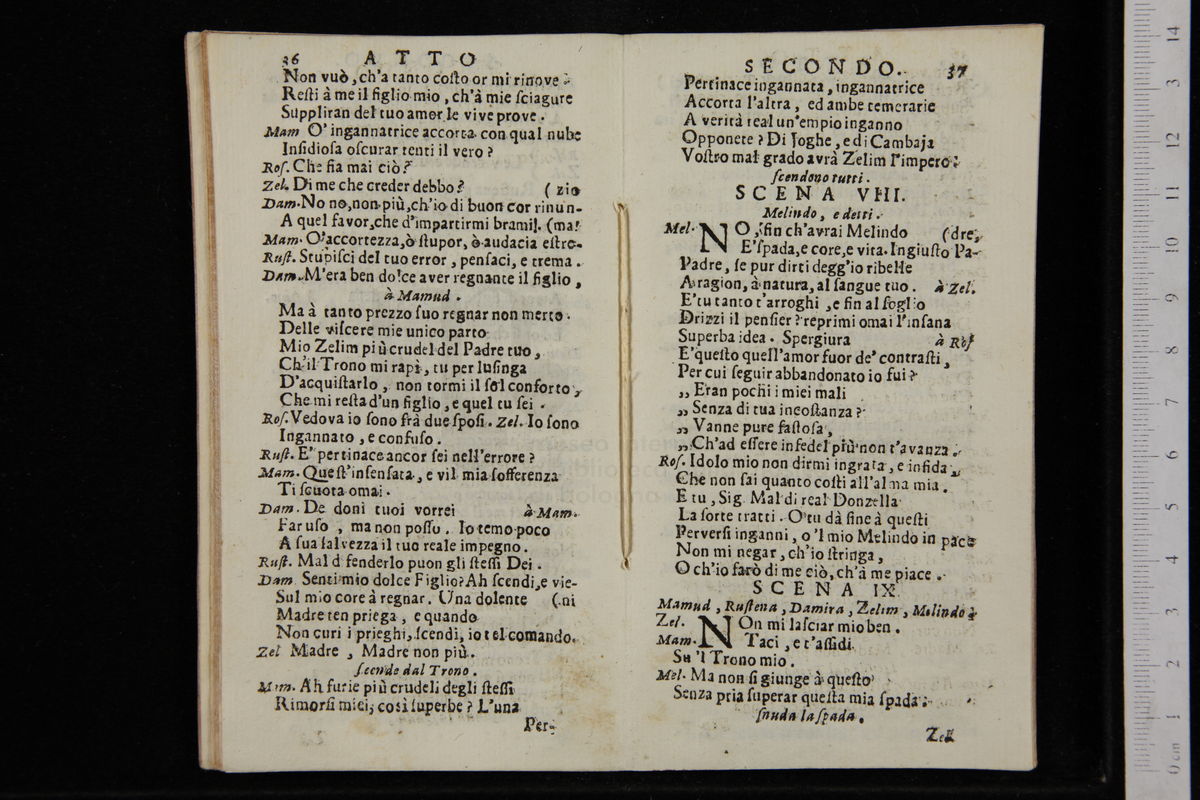 36 ATTO
Non vuò, ch'a tanto coſto or mi rinove:
Reſti à me il figlio mio, ch'à mie ſciagure
Suppliran del tuo amor le vive prove.
Mam O' ingannatrice accorta con qual nube
Inſidioſa oſcurar tenti il vero?
Roſ. Che fia mai ciò?
Zel. Di me che creder debbo? (zio
Dam. No no, non più, ch'io di buon cor rinun-
A quel favor, che d'impartirmi brami. (ma!
Mam. O' accortezza, ò ſtupor, ò audacia eſtre-
Ruſt. Stupiſci del tuo error, penſaci, e trema.
Dam. M'era ben dolce aver regnante il figlio,
à Mamud.
Ma à tanto prezzo ſuo regnar non merto.
Delle viſcere mie unico parto
Mio Zelim più crudel del Padre tuo,
Ch'il Trono mi rapì, tu per luſinga
D'acquiſtarlo, non tormi il ſol conforto,
Che mi reſta d'un figlio, e quel tu ſei.
Roſ. Vedova io ſono frà due ſpoſi. Zel. Io ſono
Ingannato, e confuſo.
Ruſt. E' pertinace ancor ſei nell'errore?
Mam. Queſt'inſenſata, e vil mia ſofferenza
Ti ſcuota omai.
Dam. De doni tuoi vorrei à Mam.
Far uſo, ma non poſſo. Io temo poco
A ſua ſalvezza il tuo reale impegno.
Ruſt. Mal d fenderlo puon gli ſteſſi Dei.
Dam Senti mio dolce Figlio? Ah ſcendi, e vie-
Sul mio core à regnar. Una dolente (ni
Madre ten priega, e quando
Non curi i prieghi, ſcendi, io tel comando.
Zel Madre, Madre non più.
ſcende dal Trono.
Mam. Ah furie più crudeli degli ſteſſi
Rimorſi miei, così ſuperbe? L'una
Per-
SECONDO. 37
Pertinace ingannata, ingannatrice
Accorta l'altra, ed ambe temerarie
A verità real un'empio inganno
Opponete? Di Joghe, e di Cambaja
Voſtro mal grado avrà Zelim l'impero.
ſcendono tutti.
SCENA VIII.
Melindo, e detti.
Mel. NO, ſin ch'avrai Melindo (dre,
E' ſpada, e core, e vita. Ingiuſto Pa-
Padre, ſe pur dirti degg'io ribelle
A ragion, à natura, al ſangue tuo. à Zel.
E' tu tanto t'arroghi, e fin al ſoglio
Drizzi il penſier? reprimi omai l'inſana
Superba idea. Spergiura à Roſ
E' queſto quell'amor fuor de' contraſti,
Per cui ſeguir abbandonato io fui?
„ Eran pochi i miei mali
„ Senza di tua incoſtanza?
„ Vanne pure faſtoſa,
„ Ch'ad eſſere infedel più non t'avanza.
Roſ. Idolo mio non dirmi ingrata, e infida,
Che non ſai quanto coſti all'alma mia.
E tu, Sig. Mal di real Donzella
La ſorte tratti. O' tu dà fine à queſti
Perverſi inganni, o 'l mio Melindo in pace
Non mi negar, ch'io ſtringa,
O ch'io farò di me ciò, ch'à me piace.
SCENA IX.
Mamud, Ruſtena, Damira, Zelim, Melindo
Zel. NOn mi laſciar mio ben.
Mam. Taci, e t'aſſidi
Su 'l Trono mio.
Mel. Ma non ſi giunge à queſto
Senza pria ſuperar queſta mia ſpada.
ſnuda la ſpada.
Zel